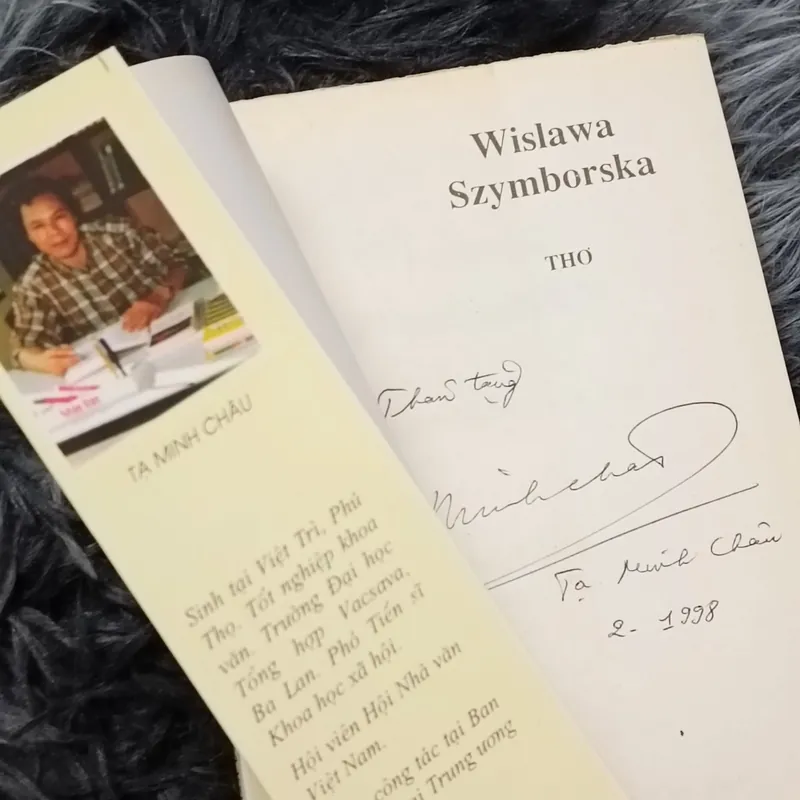 TẠ MINH CHÂU
Sinh tại Việt Trì, Phú
Thọ. Tốt nghiệp khoa
văn. Trường Đại học
Tổng hợp Vacsava,
Ba Lan. Phó Tiến sĩ
Khoa học xã hội.
Hội viên Hội Nhà văn
Việt Nam.
công tác tại Ban
Trung ương
Wislawa
Szymborska
THƠ
Thân tặng
Minhchau
Tạ Minh Châu
2- 1998